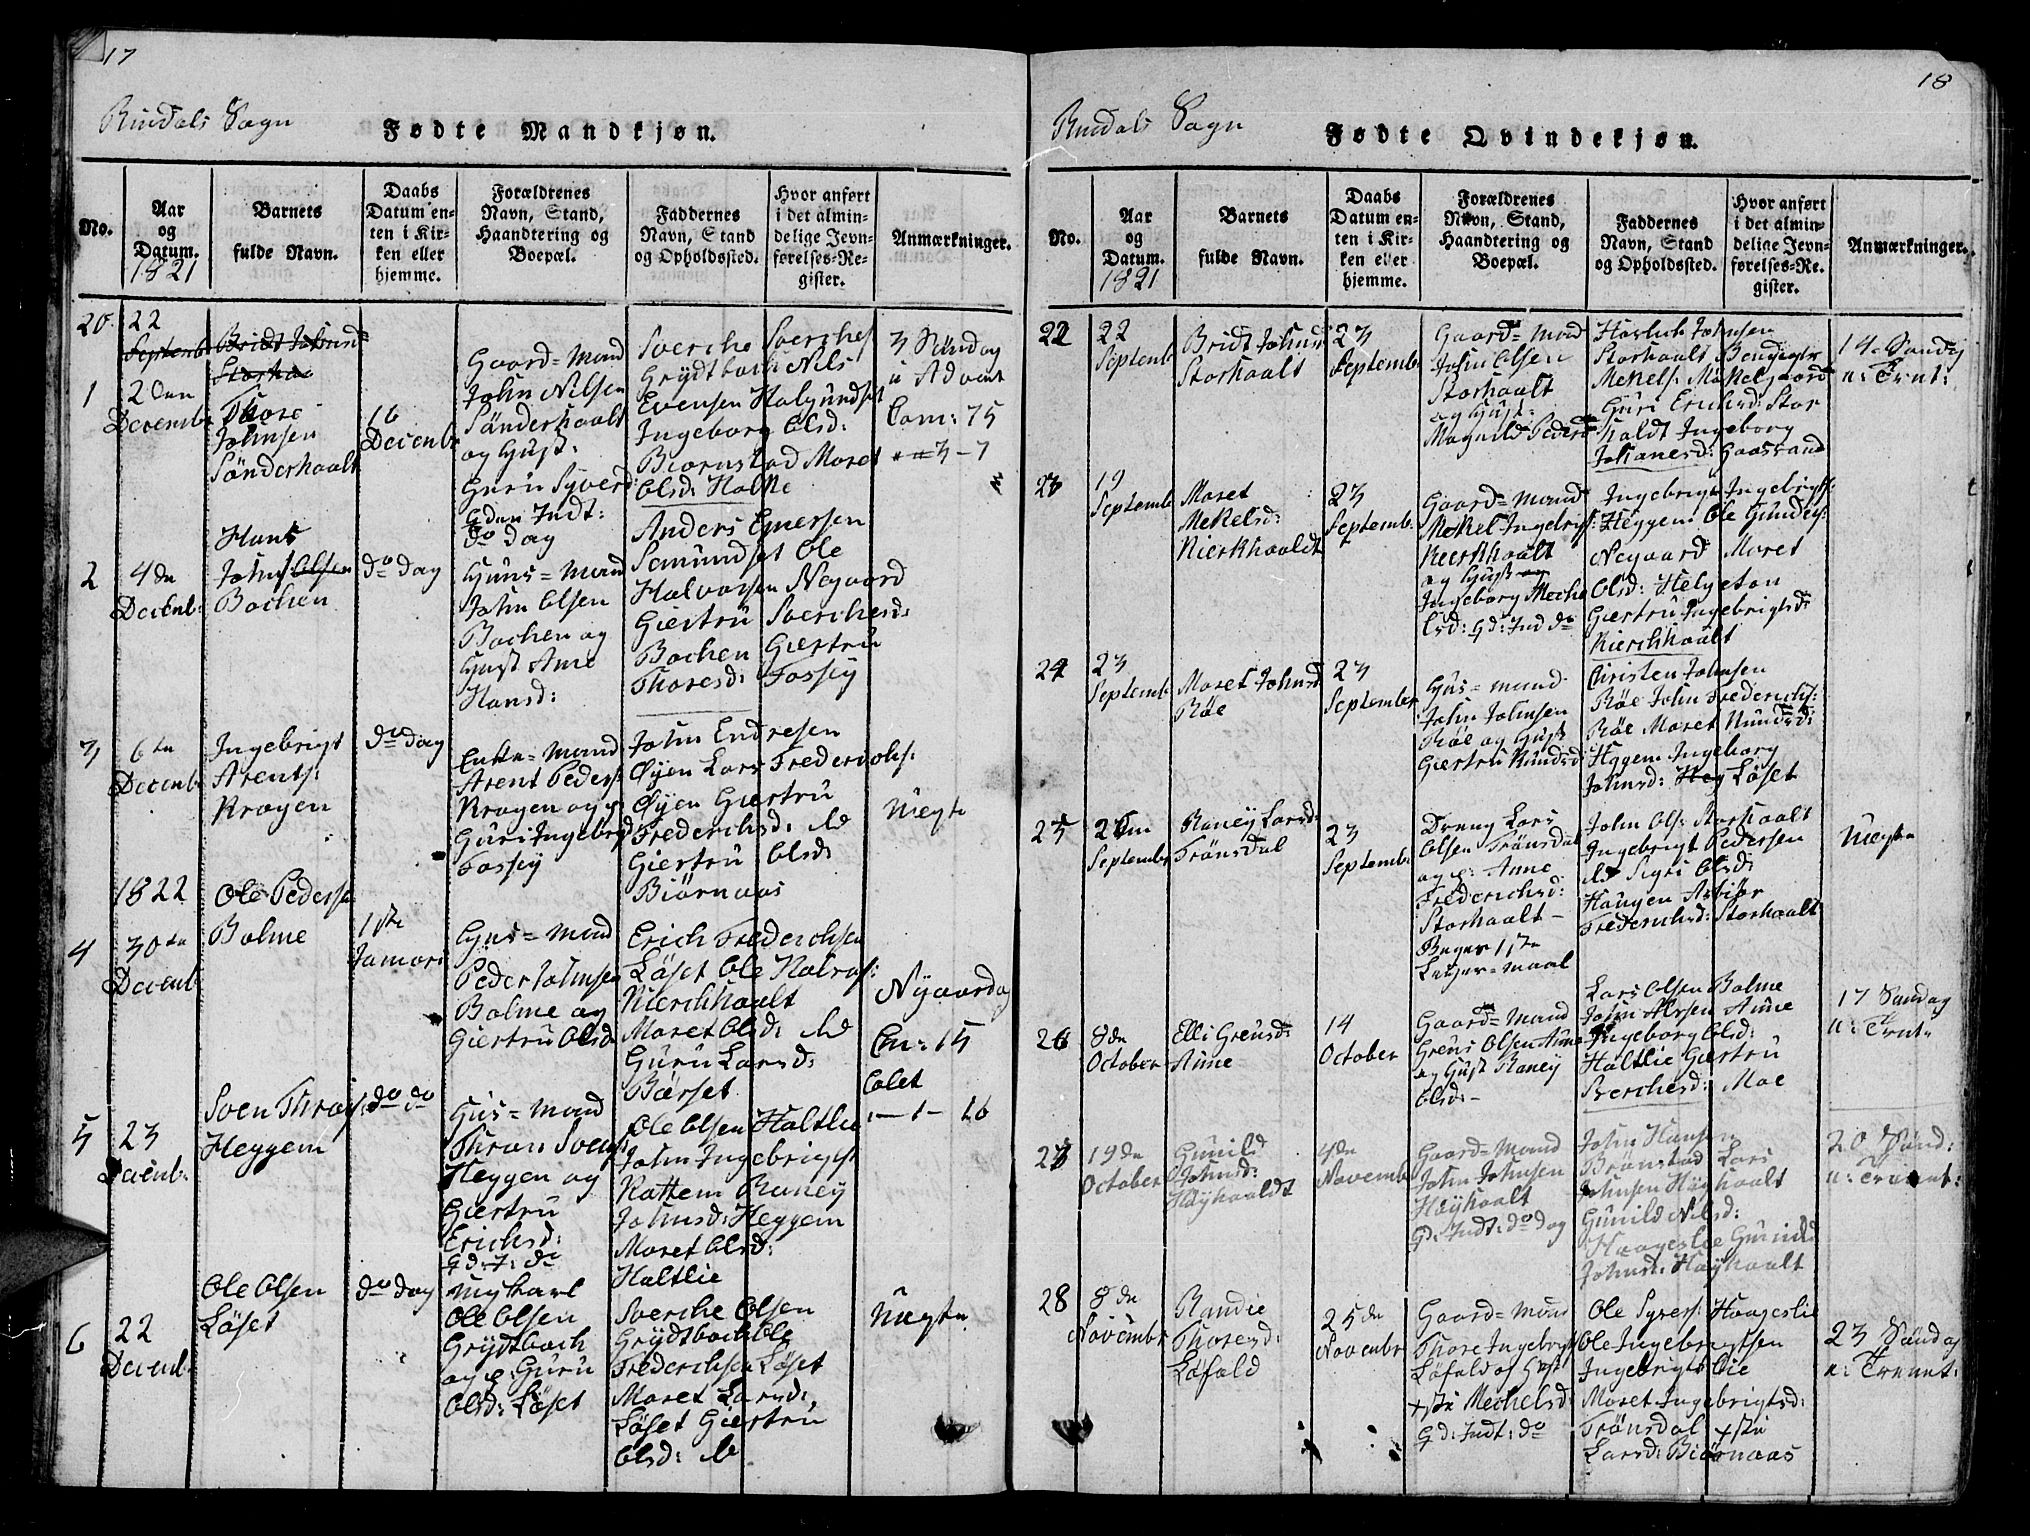 17
Rindals Sogn
Fødte Mandkjøn.
No.
Aar
og
Datum.
1821
Barnets
fulde Navn.
Daabs
Datum en-
ten i Kir-
ken eller
hjemme.
Forældrenes
Navn, Stand,
Haandtering og
Boepæl.
Faddernes
Navn, Stand
og Opholdssted.
Hvor anført
i det almin-
delige Jevn-
førelses-Re-
gister.
Anmærkninger.
20. 22
Septemb
Bridt Johnsd
1
2den
Decembr
Thore
Johnsen
Sønderhaalt
16
Decembr
Gaard=Mand
John Nilsen
Sønderhaalt
og Hust:
Guru Syverd
Gden Indt:
do dag
Sverche Sverches
Grydtbach Nils
Evensen Halgundset
Ingeborg Olsd:
Biørnstad Maret
Olsd: Halte
3 Søndag
i Advent
Com: 75
2
4de
Decenb:
Hans
Johns Olsen
Bachen
do dag
Huus=Mand
John Olsen
Bachen og
Hust Ane
Hansd:
Anders Einersen
Semundset Ole
Halvorsen Negaard
Giertru Sverchesd:
Bachen Giertru
Thoresd: Fossey
3
6te
Decenbr
Ingebrigt
Arents:
Kragen
do dag
Enke=Mand
Arent Peders:
Kragen og p
Guri Ingebrd
Fossey
John Endresen
Øyen Lars Frederichs:
Øyen Giertru
Frederichsd: do
Giertru Olsd:
Biørnaas
Uægte
1822
4
30te
Decenb
Ole Pedersen
Bolme
1ste
Januari
Huus=Mand
Peder Johnsen
Bolme og
Giertru Olsd
Erich Frederichsen
Løset Ole Halvos:
Kierchhaalt
Maret Olsd: do
Guru Larsd:
Børset
Nyaarsdag
Cm: 15
Colet
5
23
Decenb:
Sven Thros:
Heggem
do do
Huus=Mand
Thron Svens
Heggen og
Giertru
Erichsd:
Gd: I: do
Ole Olsen Haltlie
John Ingebrigts
Rattem Raney
Johnsd: Heggem
Maret Olsd:
Haltlie
16
6
22
Decenb:
Ole Olsen
Løset
do dag
Ungkarl
Ole Olsen
Grydtbach
og p: Guru
Olsd: Løset
Sverche Olsen
Grydtbach Ole
Frederichsen Løset
Maret Larsd:
Løset Giertru
Olsd: do
Uægte
18
Rindals Sogn
Fødte Qvindekjøn.
No.
Aar
og
Datum.
1821
Barnets
fulde Navn.
Daabs
Datum en-
ten i Kir-
ken eller
hjemme.
Forældrenes
Navn, Stand,
Haandtering og
Boepæl.
Faddernes
Navn, Stand
og Opholdssted.
Hvor anført
i det almin-
delige Jevn-
førelses-Re-
gister.
Anmærkninger.
22
22
Septemb
Bridt Johnsd
Storhaalt
23
Septembr
Gaard=Mand
John Olsen
Storhaalt
og Hust:
Magnild Pedersd
Johnsen
Storhaalt Bengigtr
Mekels: Mækelgaard
Guri Erichsd: Stor
haldt Ingeborg
Johanesd: Gaasvand
14. Søndag
e: Trnt:
23
19
Septemb
Maret
Mekelsd:
Kierkhaaldt
23
Septemb.
Gaard=Mand
Mekel Ingebrigs:
Keerkhaalt
og Hust
Ingeborg Meche
lsd: Gd: Ind do
Ingebrigt Ingebrigts:
Heggem Ole Gundes:
Negaard Maret
Olsd: Helgeton
Giertru Ingebrigtsd:
Kierchhaalt
24
23
Septemb
Maret Johnsd
Røe
23
Septembr
Huus=Mand
John Johnsen
Røe og Hust
Giertru Knudsd
Christen Johnsen
Røe John Frederichs:
Røe Maret Knudsd:
Heggem Ingeborg
Johnsd: Løset
25
Septembr
Raney Larsd:
Trønsdal
23
Septembr
Dreng Lars
Olsen Trønsdal
og p: Anne
Frederichsd:
Storhaalt-
Beger 1ste
Leyer=maal
John Ols: Storhaalt
Ingebrigt Pedersen
do Sigri Olsd:
Haugen
Frederichsd: Storhaalt
Uægte
26
8de
October
Elli Greusd:
Aune
14
October
Gaard=Mand
Greus Olsen Aune
og Hust Raney
Olsd-
Lars Olsen Bolme
John Aune
Ingeborg Olsd:
Haltlie Giertru
Sverchesd: Moe
17 Søndag
e: Trnt:
27
19de
October
Gunild
Johnsd:
Høyhaaldt
4de
Novembr
Gaard=Mand
John Johnsen
Høyhaalt
Gd: Indt: do dag
John Hansen
Brønstad Lars
Johnsen Høyhaalt
Gunild Nilsd:
Haageslie Gunild
Johnsd: Høyhaalt
20 Sønd:
e: Trenet:
28
8de
Novembr
Randie
Thoresd:
Løfald
25de
Novembr
Gaard=Mand
Thore Ingebrigt
Løfald og Hust
Mechelsd:
Gd: Indt: do
Ole Syvers: Haageslie
Ole Ingebrigtsen
Ingebrigt Lie
Maret Ingebrigtsd:
Trønsdal
Larsd: Biørnaas
23 Søndag
e: Trenet: